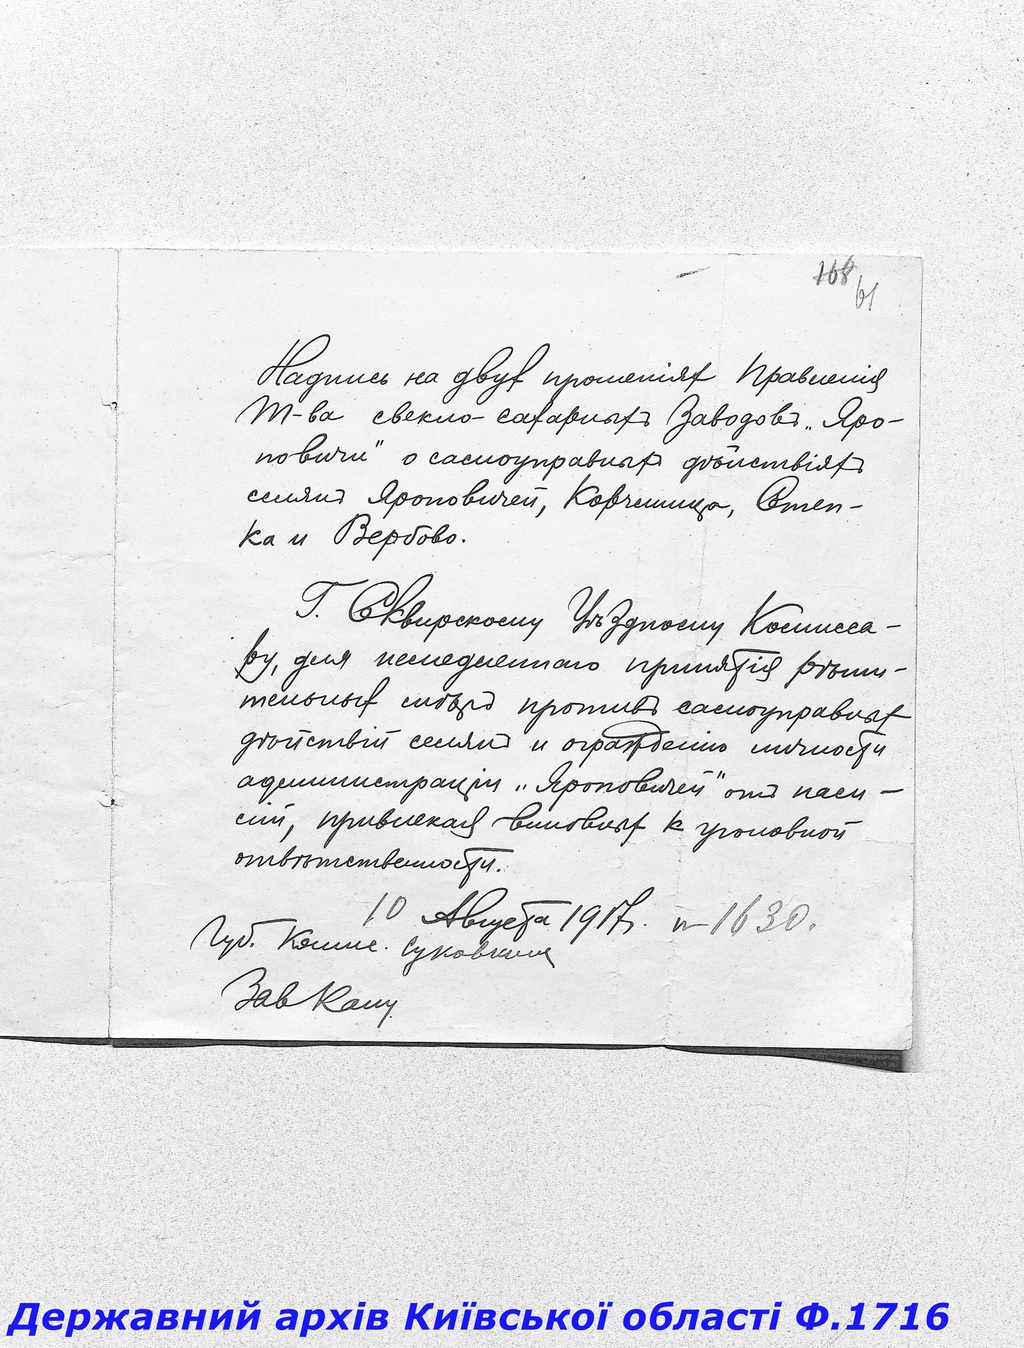 168
61
Надпись на двух прошеніях Правленія
Т-ва свекло-сахарныхъ Заводовъ „Яро-
повичи" о самоуправныхъ дѣйствіяхъ
селянъ Яроповичей, Корчемища, Степ-
ка и Вербово.
Г. Сквирскому Уѣздному Комисса-
ру, для немедленнаго принятія рѣши-
тельных мѣръ противъ самоуправных
дѣйствій селянъ и огражденію личности
администраціи „Яроповичей" отъ наси-
лій, привлекая виновных к уголовной
отвѣтственности.
10 Августа 1917г. № 1630.
Губ. Комис. Суковкин
Зав Канц
Державний архів Київської області Ф.1716